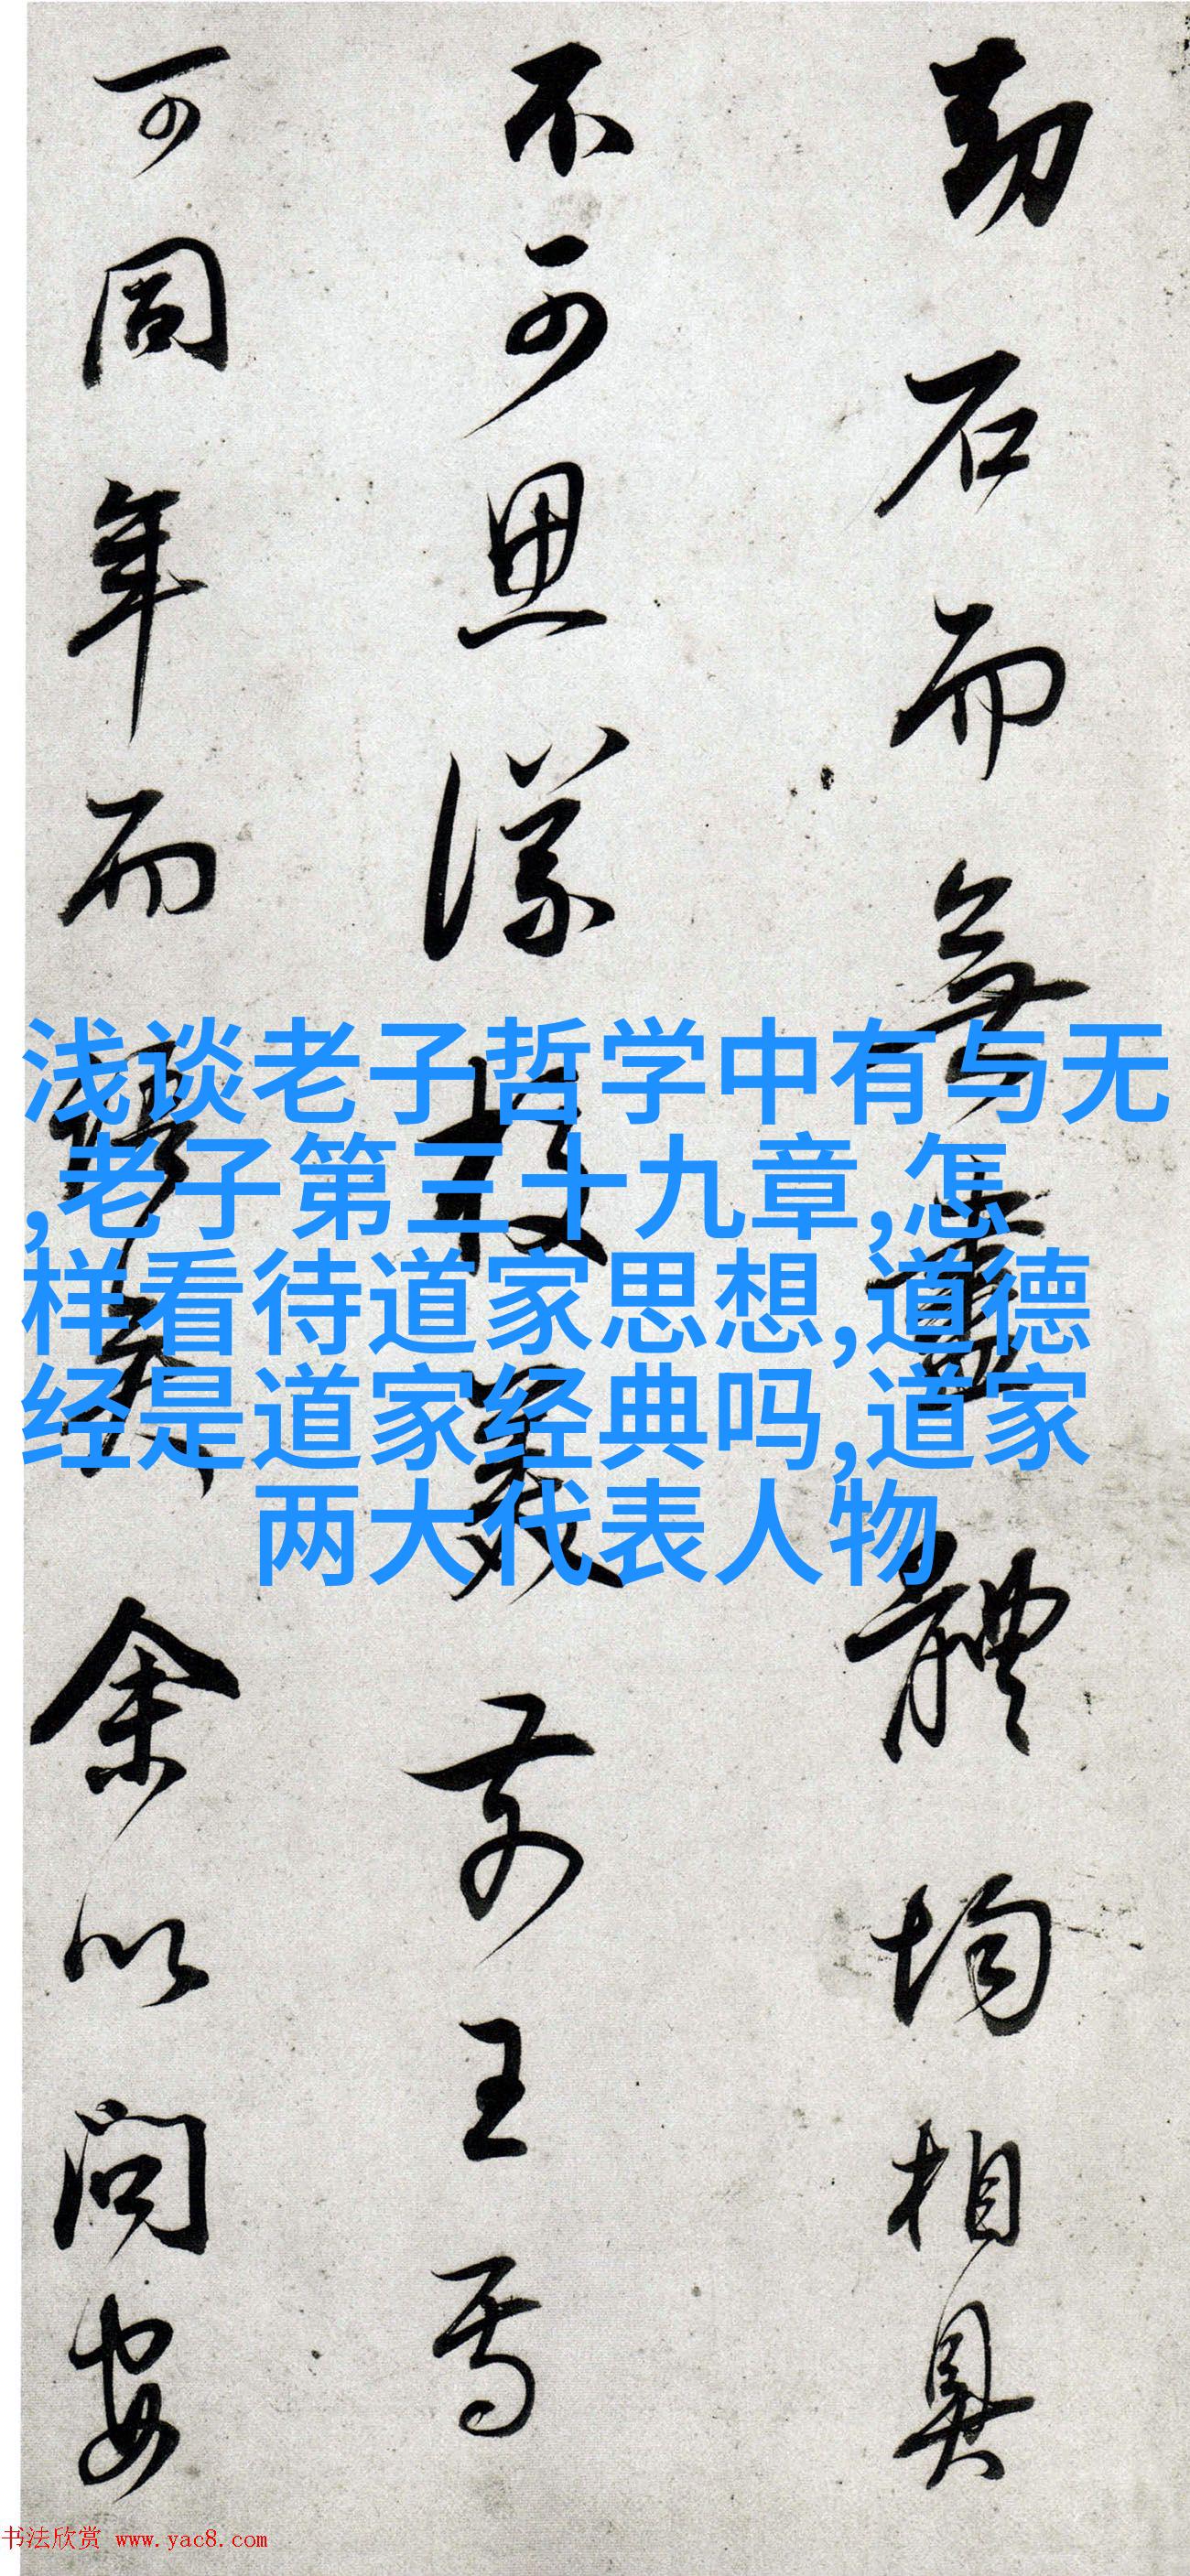 劫石而無盡體均相具
不可思議故篆前王焉
可同年而語矣余以問安
浅谈老子哲学中有与无
,老子第三十九章,怎
样看待道家思想,道德
经是道家经典吗,道家
两大代表人物
书法欣赏 www.yac8.com